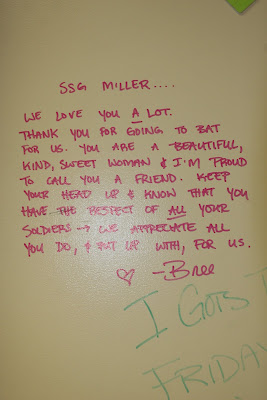 SSG MILLER....
WE LOVE YOU A LOT.
THANK YOU FOR GOING TO BAT
FOR US. YOU ARE A BEAUTIFUL,
KIND, SWEET WOMAN & I'M PROUD
TO CALL YOU A FRIEND. KEEP
YOUR HEAD UP & KNOW THAT YOU
HAVE THE RESPECT OF ALL YOUR
SOLDIERS → WE APPRECIATE ALL
YOU DO, & PUT UP WITH, FOR US.
♡ -Bree
I GOTS
FRIDAY